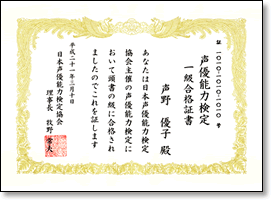 証 1010-1010-1010 号
声優能力検定
一級合格証書
声野 優子 殿
あなたは日本声優能力検定
協会主催の声優能力検定に
おいて頭書の級に合格され
ましたのでこれを証します
平成二十一年三月十日
日本声優能力検定協会
理事長 牧野 常夫